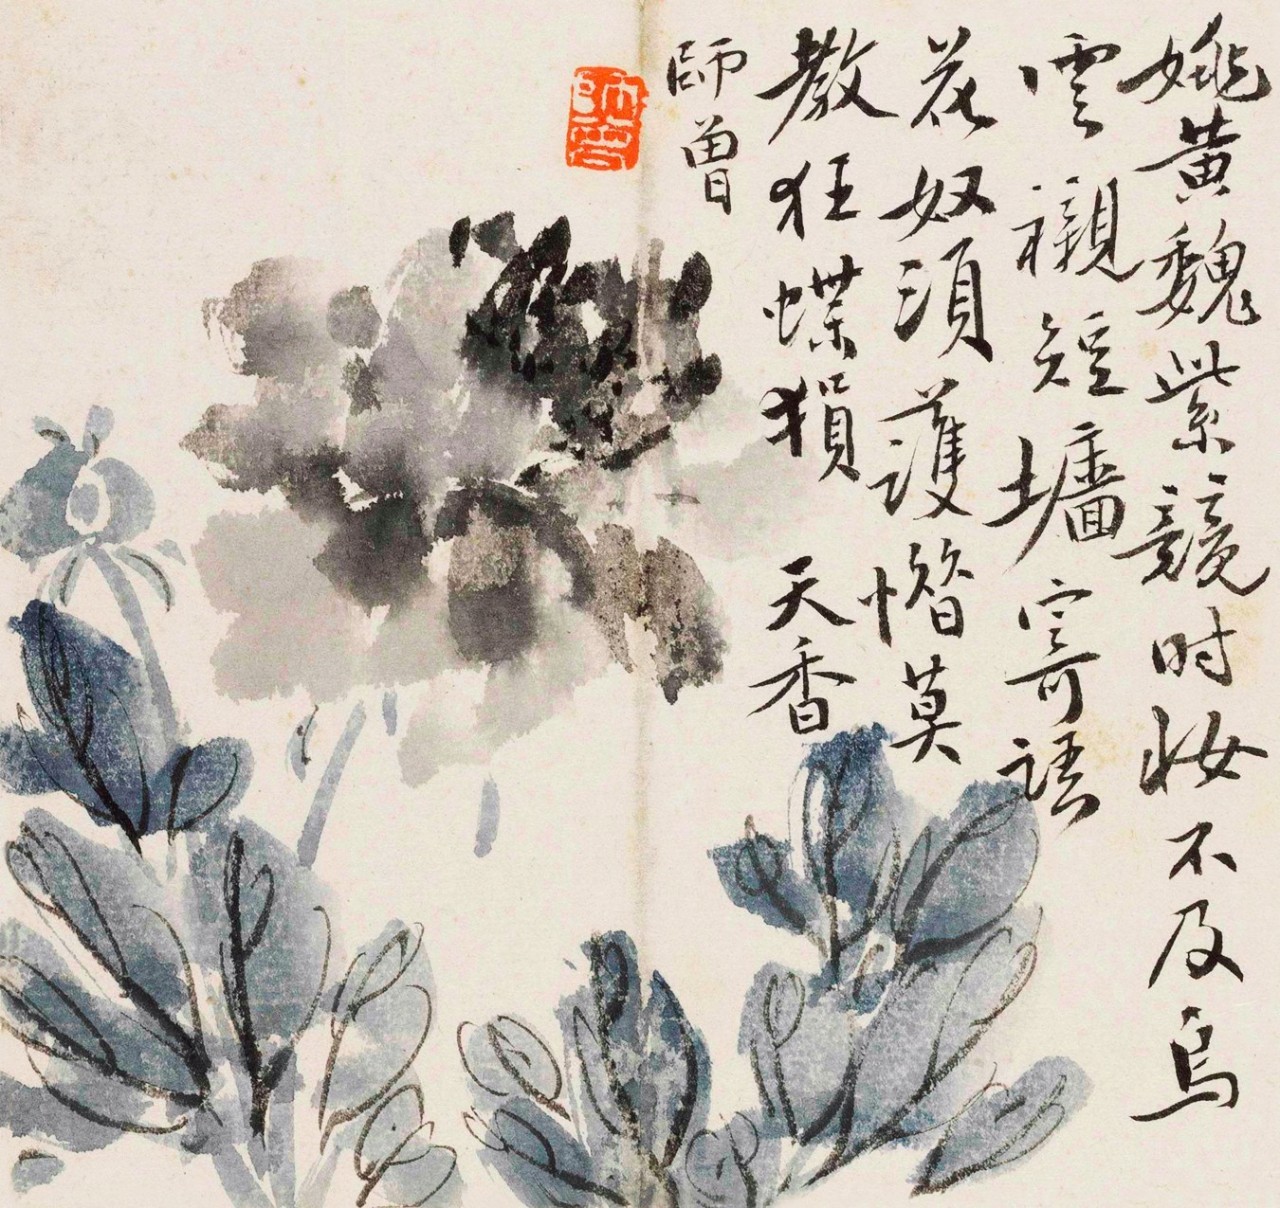 姚黃魏紫競时妆不及烏
雲襯短墻寄語
花奴須護惜莫
教狂蝶損 天香
師曾
師曾